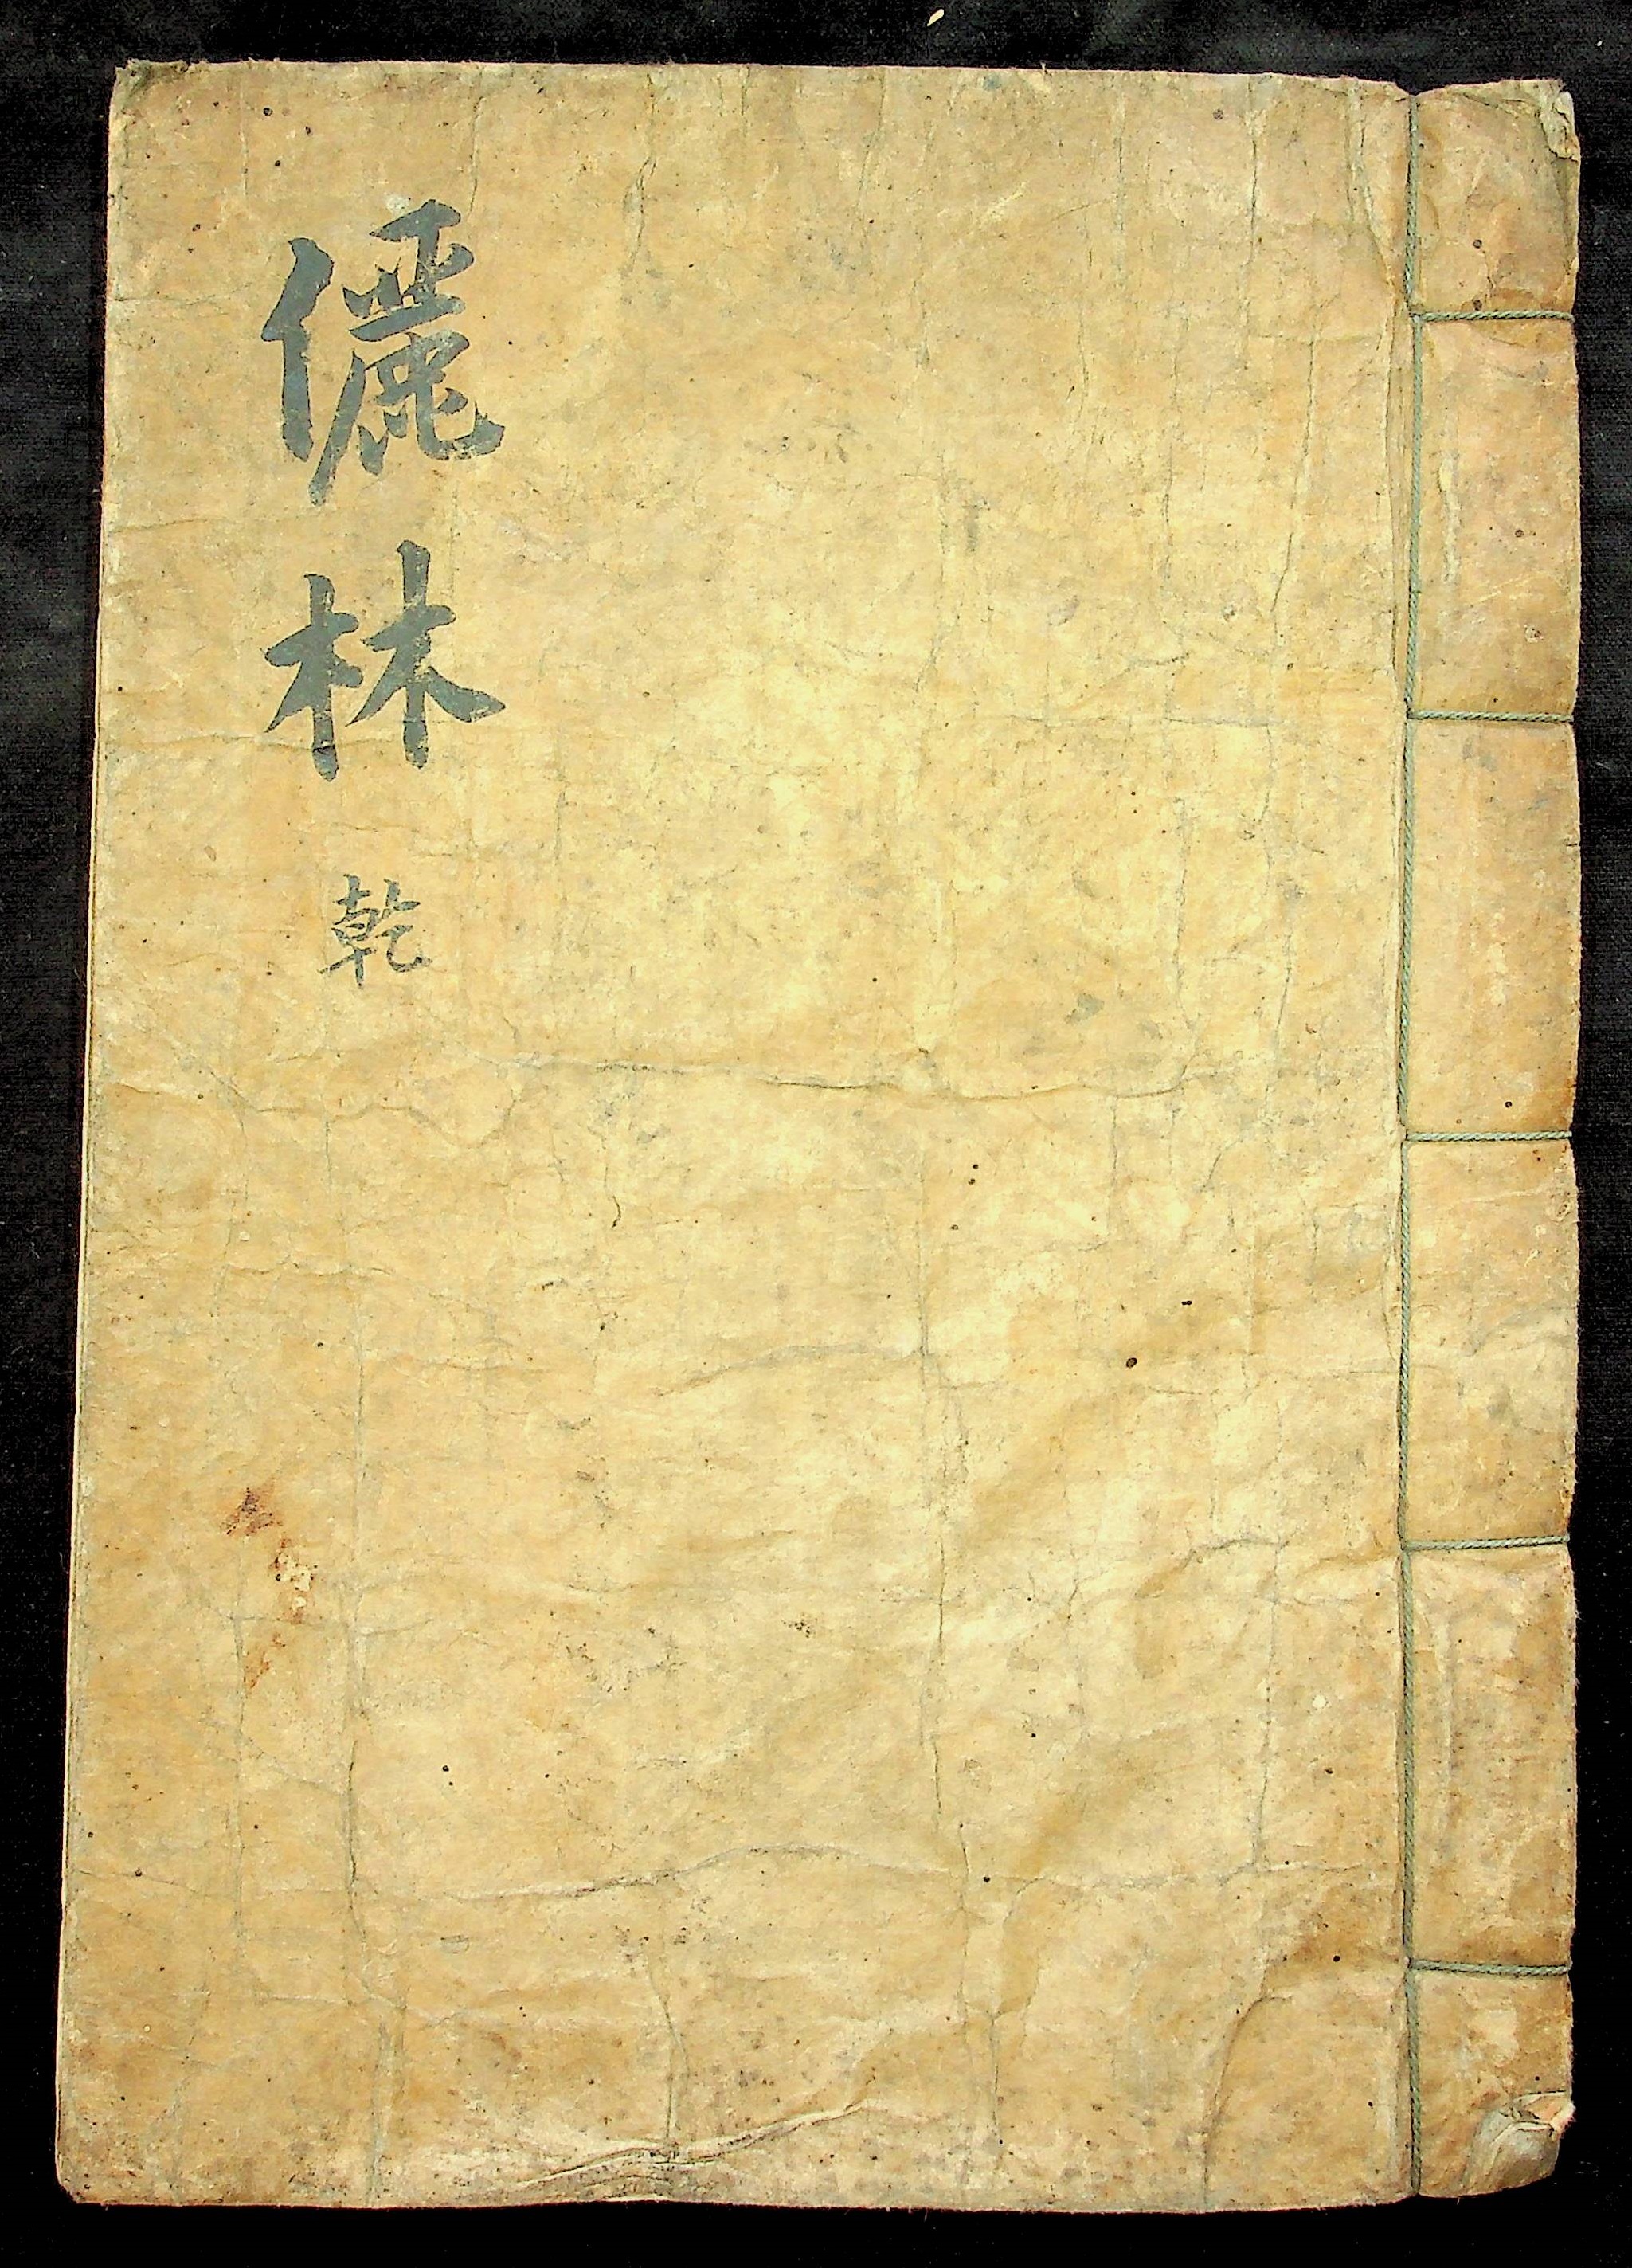 儷林
乾